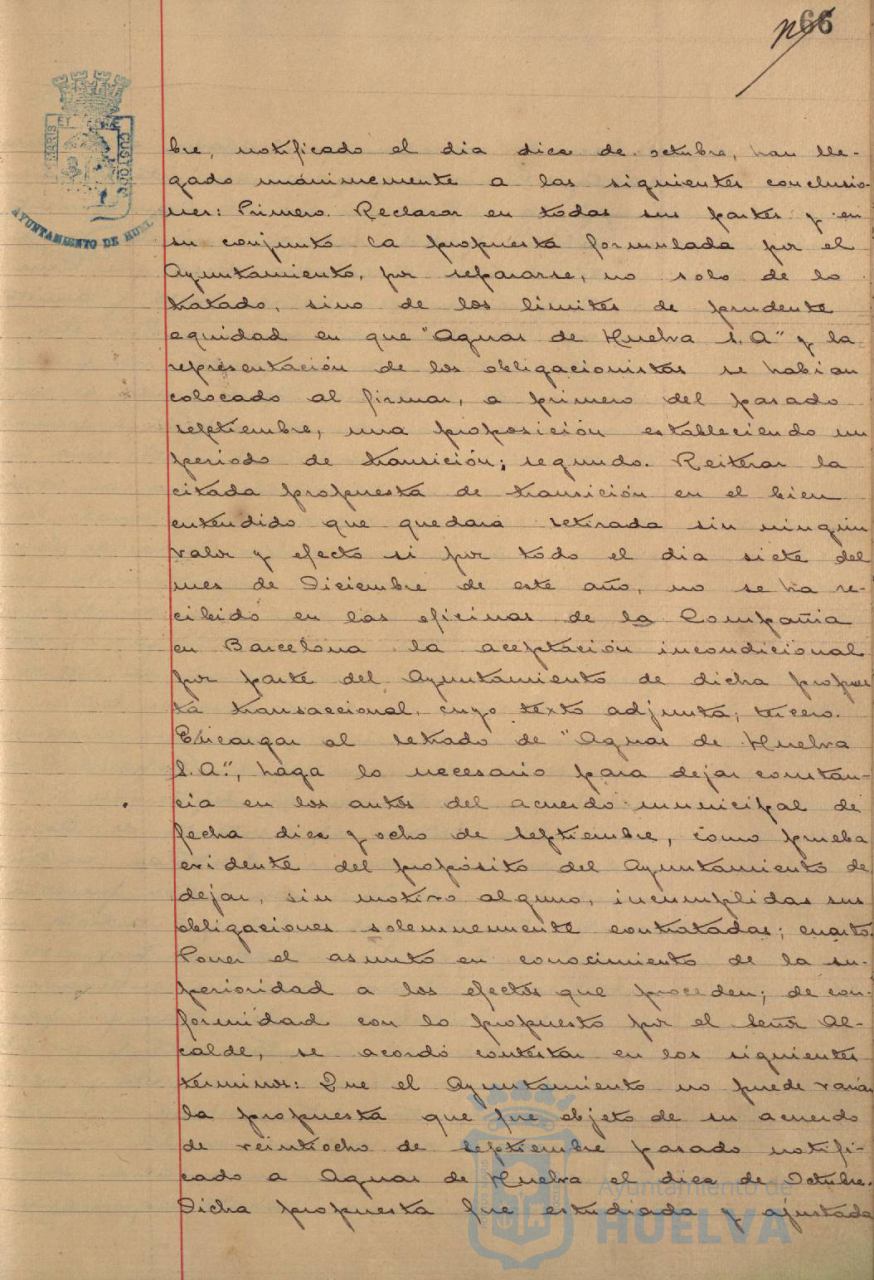 66
MARIS ET CUSTOD
AYUNTAMIENTO DE HUEL
bre, notificado el dia diez de octubre, han lle-
gado unánimemente a las siguientes conclusio-
nes: Primero. Rechazar en todas sus partes y en
su conjunto la propuesta formulada por el
Ayuntamiento, por separarse, no solo de lo
tratado, sino de los limites de prudente
equidad en que "Aguas de Huelva S.A" y la
representación de los obligacionistas se habian
colocado al firmar, a primero del pasado
septiembre, una proposición estableciendo un
periodo de transición; segundo. Reiterar la
citada propuesta de transición en el bien
entendido que quedará retirada sin ningún
valor y efecto si por todo el dia siete del
mes de Diciembre de este año, no se ha re-
cibido en las oficinas de la Compañia
en Barcelona la aceptación incondicional
por parte del Ayuntamiento de dicha propues
ta transaccional, cuyo texto adjunta; tercero.
Encargar al letrado de "Aguas de Huelva
S.A", haga lo necesario para dejar constan-
cia en los autos del acuerdo municipal de
fecha diez y ocho de septiembre, como prueba
evidente del propósito del Ayuntamiento de
dejar, sin motivo alguno, incumplidas sus
obligaciones solemnemente contratadas; cuarto.
Poner el asunto en conocimiento de la su-
perioridad a los efectos que proceden; de con-
formidad con lo propuesto por el Señor Al-
calde, se acordó contestar en los siguientes
términos: Que el Ayuntamiento no puede variar
la propuesta que fue objeto de su acuerdo
de veintiocho de septiembre pasado notifi-
cado a Aguas de Huelva el diez de Octubre.
Dicha propuesta fue estudiada y ajustada
Ayuntamiento de
HUELVA